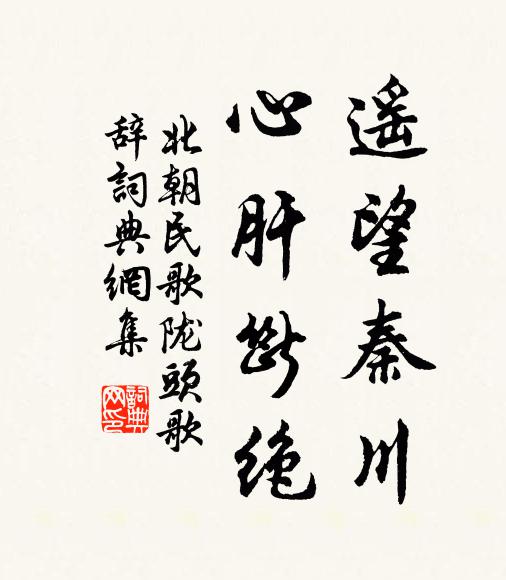 遥望秦川
心肝斷绝
北朝民歌陇頭歌
辞詞典網集
詞典网印